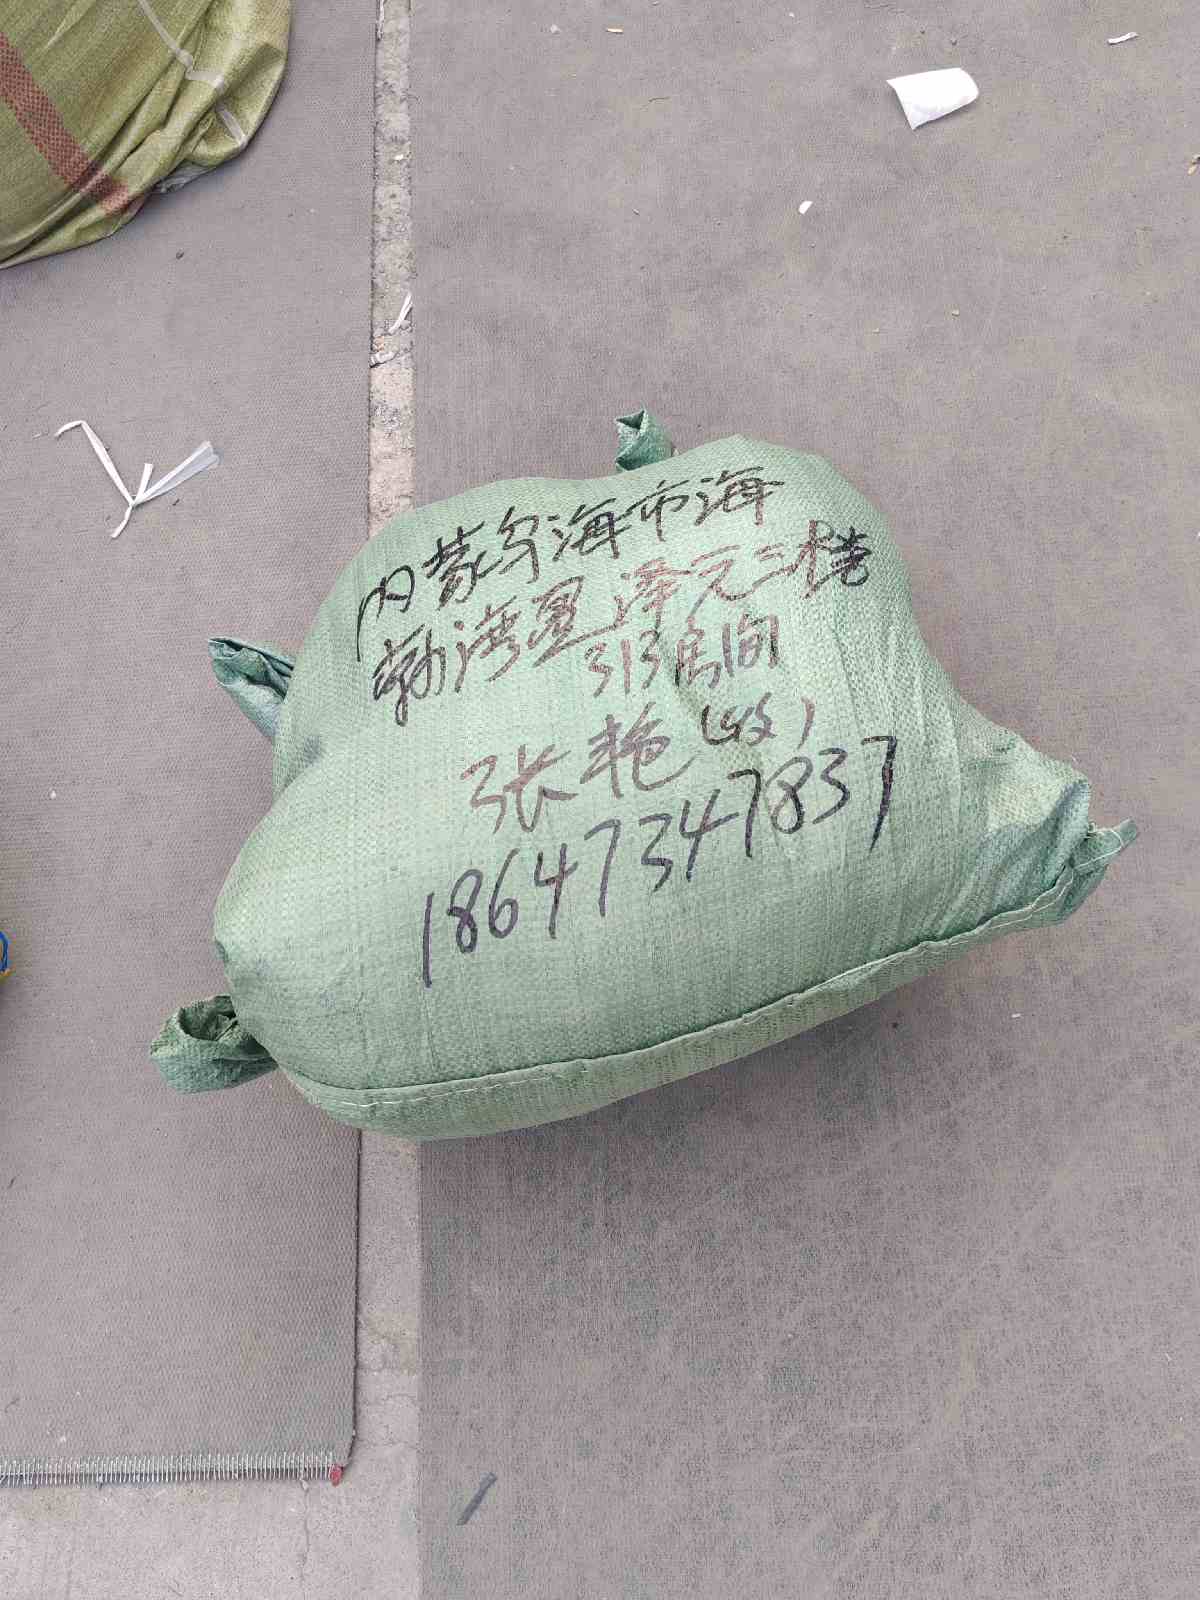 内蒙乌海市海
勃湾盈泽元三楼
313房间
张艳(收)
18647347837